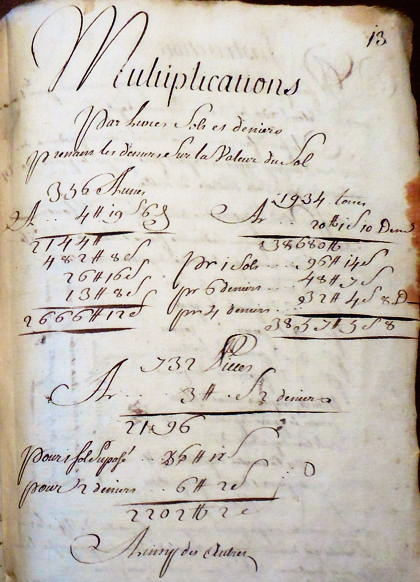 13
Multiplications
Par livres Sols et deniers
prenant les deniers Sur la Valeur du Sol
536 Aunes
A 4tt 19s 6d
2144tt
482tt 8s
26tt 16s
13tt 8s
2666tt 12s
1934 tonnes
A 20tt 1s 10 Den
38680tt
pr 1 Sols 96tt 14s
pr 6 deniers 48tt 7s
pr 4 deniers 32tt 4s 8d
38857tt 5s 8
732 Pieces
A 3tt s 2 deniers
2196
pour 1 sol Suposé 36tt 12s
pour 2 deniers 6tt 2s
2202tt 2s
Ainsy des Autres